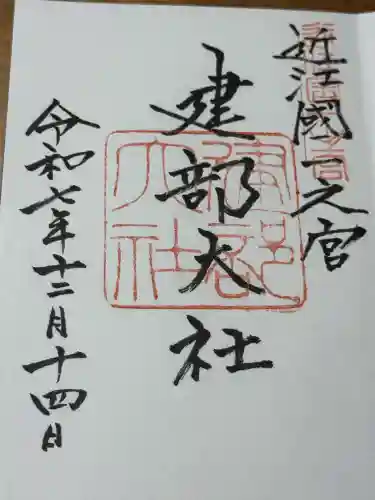 近江國一之宮
建部大社
令和七年十二月十四日